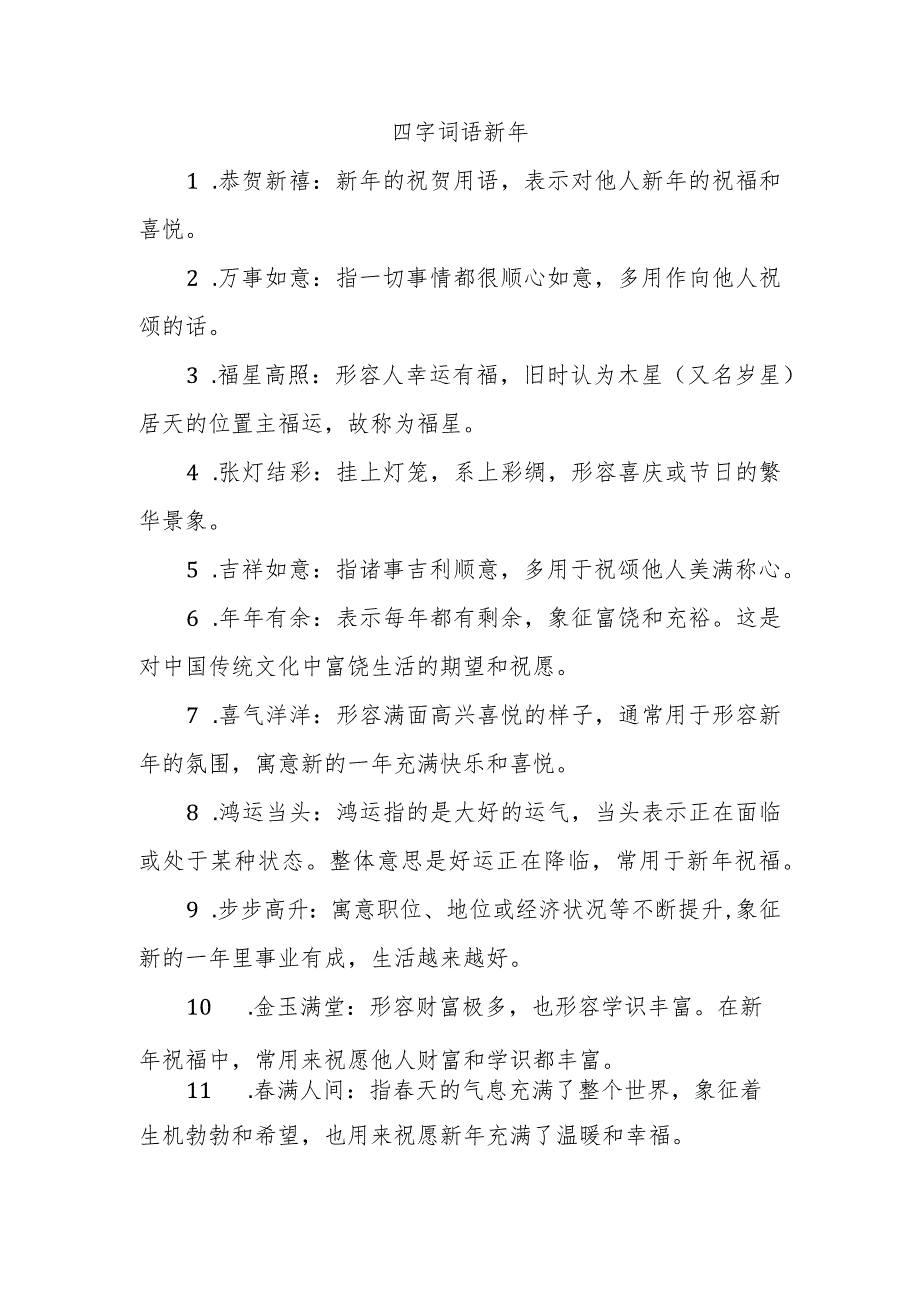 四字词语新年
1 .恭贺新禧：新年的祝贺用语，表示对他人新年的祝福和
喜悦。
2 .万事如意：指一切事情都很顺心如意，多用作向他人祝
颂的话。
3 .福星高照：形容人幸运有福，旧时认为木星（又名岁星）
居天的位置主福运，故称为福星。
4 .张灯结彩：挂上灯笼，系上彩绸，形容喜庆或节日的繁
华景象。
5 .吉祥如意：指诸事吉利顺意，多用于祝颂他人美满称心。
6 .年年有余：表示每年都有剩余，象征富饶和充裕。这是
对中国传统文化中富饶生活的期望和祝愿。
7 .喜气洋洋：形容满面高兴喜悦的样子，通常用于形容新
年的氛围，寓意新的一年充满快乐和喜悦。
8 .鸿运当头：鸿运指的是大好的运气，当头表示正在面临
或处于某种状态。整体意思是好运正在降临，常用于新年祝福。
9 .步步高升：寓意职位、地位或经济状况等不断提升,象征
新的一年里事业有成，生活越来越好。
10 .金玉满堂：形容财富极多，也形容学识丰富。在新
年祝福中，常用来祝愿他人财富和学识都丰富。
11 .春满人间：指春天的气息充满了整个世界，象征着
生机勃勃和希望，也用来祝愿新年充满了温暖和幸福。